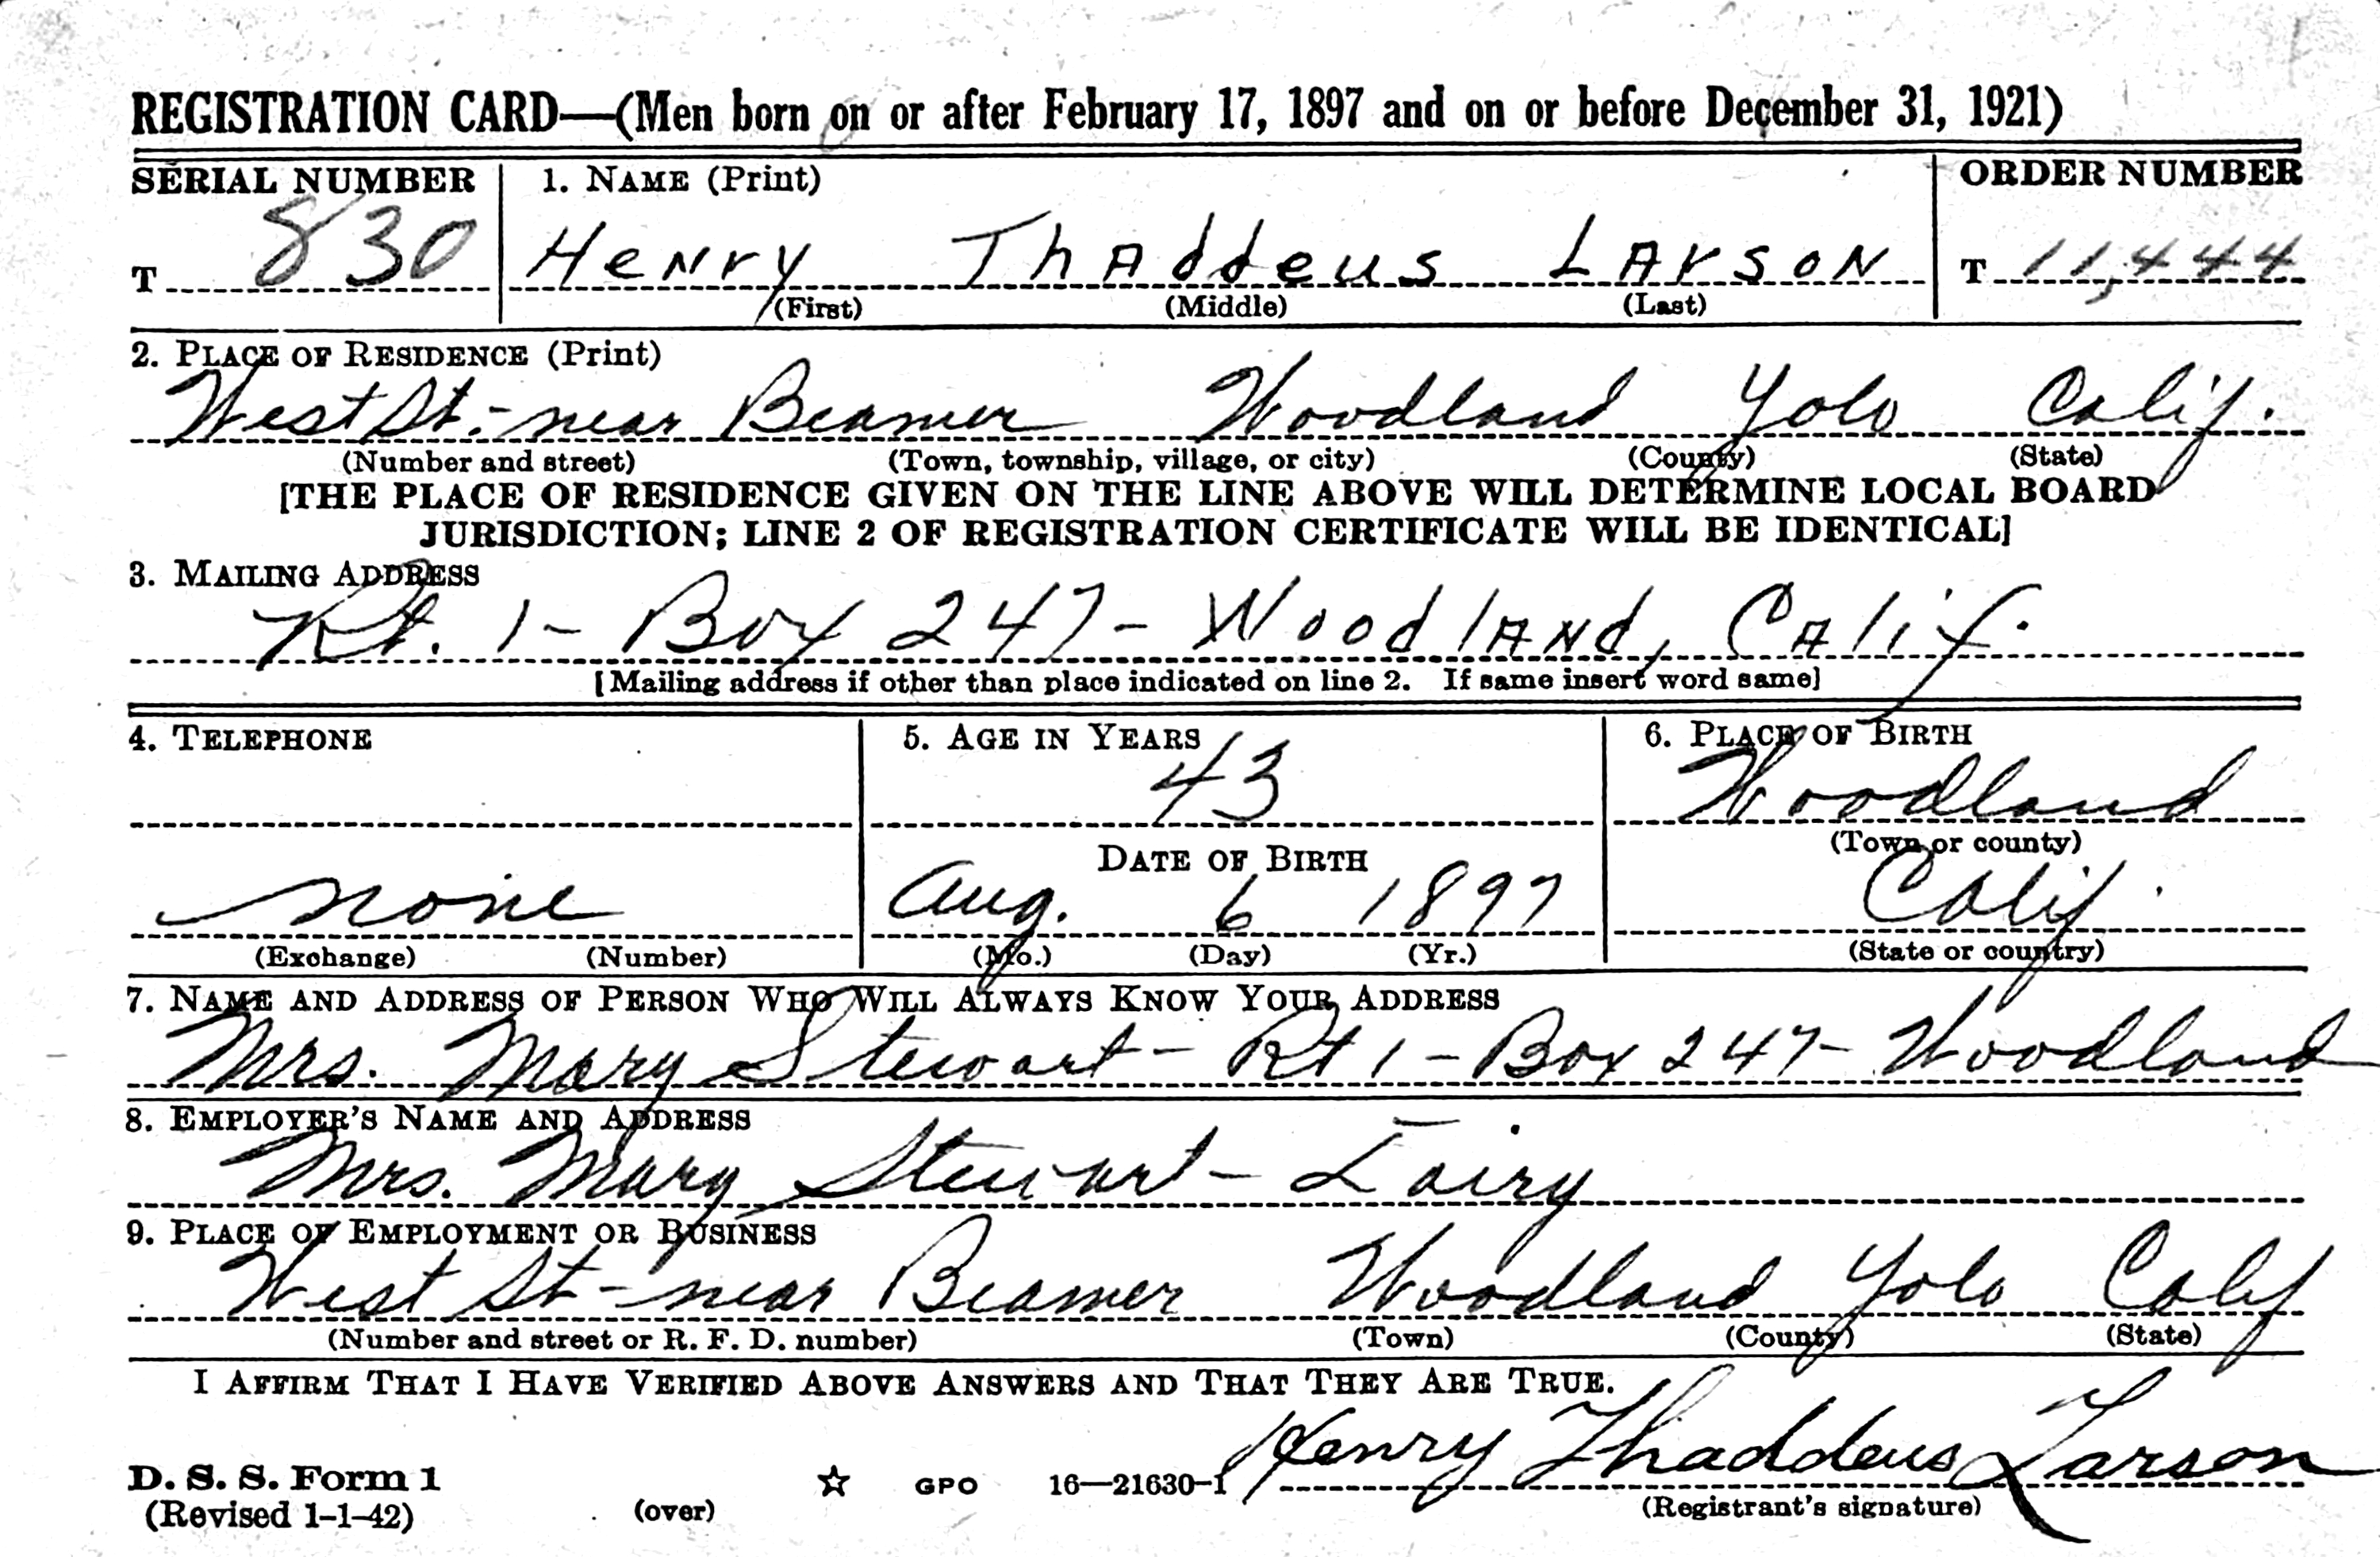 REGISTRATION CARD—(Men born on or after February 17, 1897 and on or before December 31, 1921)
SERIAL NUMBER 1. NAME (Print) ORDER NUMBER
T 830 Henry Thaddeus Larson T 11,444
(First) (Middle) (Last)
2. PLACE OF RESIDENCE (Print)
West St. - near Beamer Woodland Yolo Calif.
(Number and street) (Town, township, village, or city) (County) (State)
[THE PLACE OF RESIDENCE GIVEN ON THE LINE ABOVE WILL DETERMINE LOCAL BOARD
JURISDICTION; LINE 2 OF REGISTRATION CERTIFICATE WILL BE IDENTICAL]
3. MAILING ADDRESS
Rt. 1 - Box 247 - Woodland, Calif.
[Mailing address if other than place indicated on line 2. If same insert word same]
4. TELEPHONE 5. AGE IN YEARS 6. PLACE OF BIRTH
43 Woodland
DATE OF BIRTH (Town or county)
none Aug. 6 1897 Calif.
(Exchange) (Number) (Mo.) (Day) (Yr.) (State or country)
7. NAME AND ADDRESS OF PERSON WHO WILL ALWAYS KNOW YOUR ADDRESS
Mrs. Mary Stewart - Rt 1 - Box 247 - Woodland
8. EMPLOYER'S NAME AND ADDRESS
Mrs. Mary Stewart - Dairy
9. PLACE OF EMPLOYMENT OR BUSINESS
West St - near Beamer Woodland Yolo Calif
(Number and street or R. F. D. number) (Town) (County) (State)
I AFFIRM THAT I HAVE VERIFIED ABOVE ANSWERS AND THAT THEY ARE TRUE.
Henry Thaddeus Larson
D. S. S. Form 1 GPO 16—21630-1
(Revised 1-1-42) (over) (Registrant's signature)